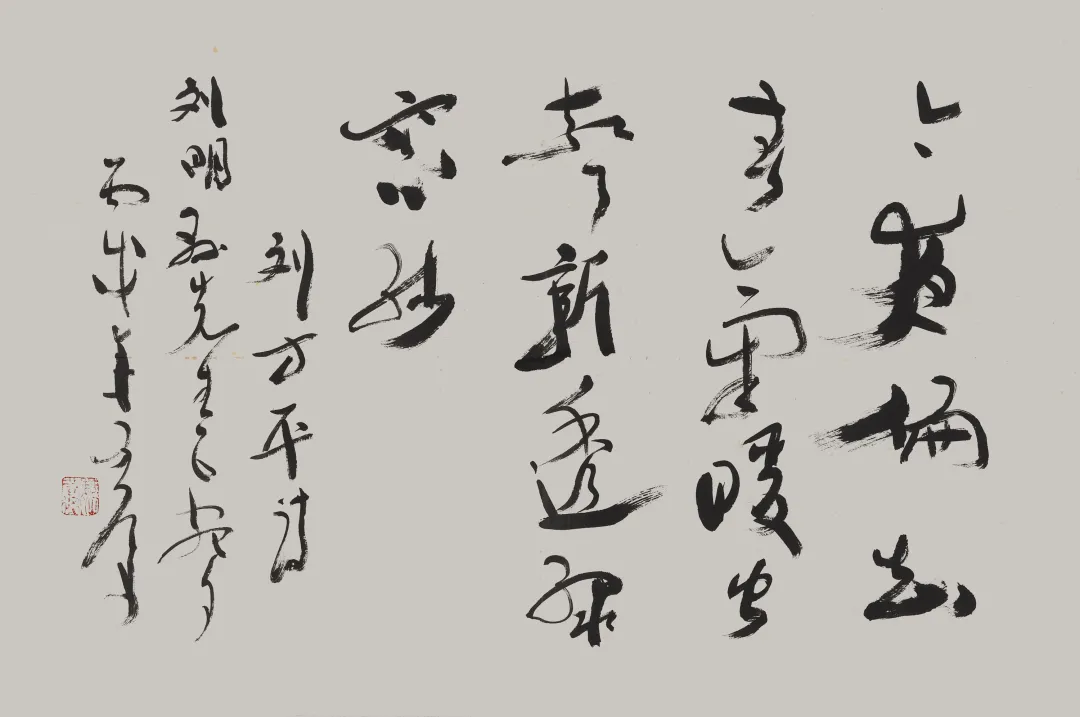 今夜偏知
春氣暖虫
聲新透绿
窗纱
刘方平诗
刘明先生正
丙戌年